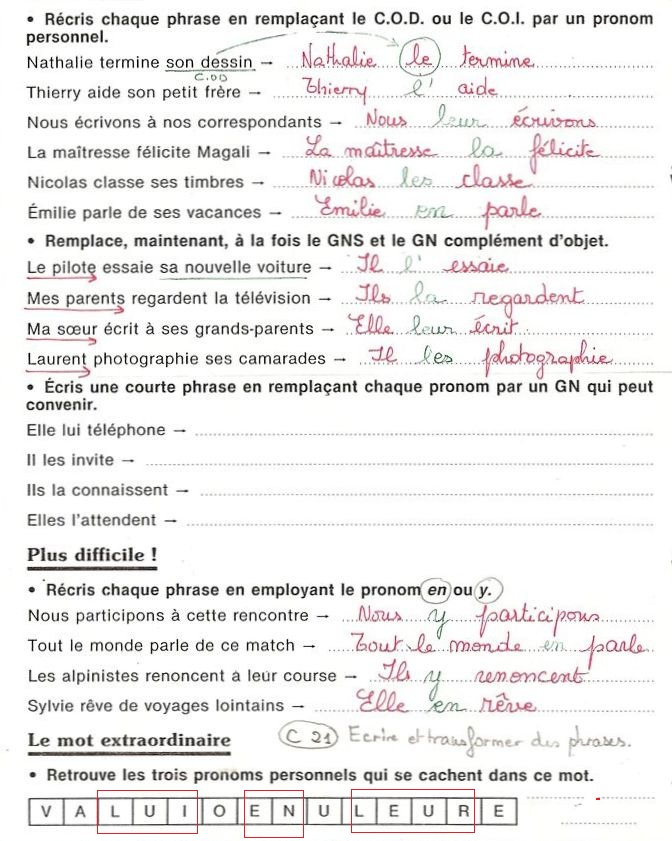 • Récris chaque phrase en remplaçant le C.O.D. ou le C.O.I. par un pronom
personnel.
Nathalie termine son dessin → Nathalie le termine
C.OD
Thierry aide son petit frère → Thierry l' aide
Nous écrivons à nos correspondants → Nous leur écrivons
La maîtresse félicite Magali → La maîtresse la félicite
Nicolas classe ses timbres → Nicolas les classe
Émilie parle de ses vacances → Emilie en parle
• Remplace, maintenant, à la fois le GNS et le GN complément d'objet.
Le pilote essaie sa nouvelle voiture → Il l' essaie
Mes parents regardent la télévision → Ils la regardent
Ma sœur écrit à ses grands-parents → Elle leur écrit
Laurent photographie ses camarades → Il les photographie
• Écris une courte phrase en remplaçant chaque pronom par un GN qui peut
convenir.
Elle lui téléphone →
Il les invite →
Ils la connaissent →
Elles l'attendent →
Plus difficile !
• Récris chaque phrase en employant le pronom en ou y.
Nous participons à cette rencontre → Nous y participons
Tout le monde parle de ce match → Tout le monde en parle
Les alpinistes renoncent à leur course → Ils y renoncent
Sylvie rêve de voyages lointains → Elle en rêve
Le mot extraordinaire C 21 Ecrire et transformer des phrases.
• Retrouve les trois pronoms personnels qui se cachent dans ce mot.
V A L U I O E N U L E U R E